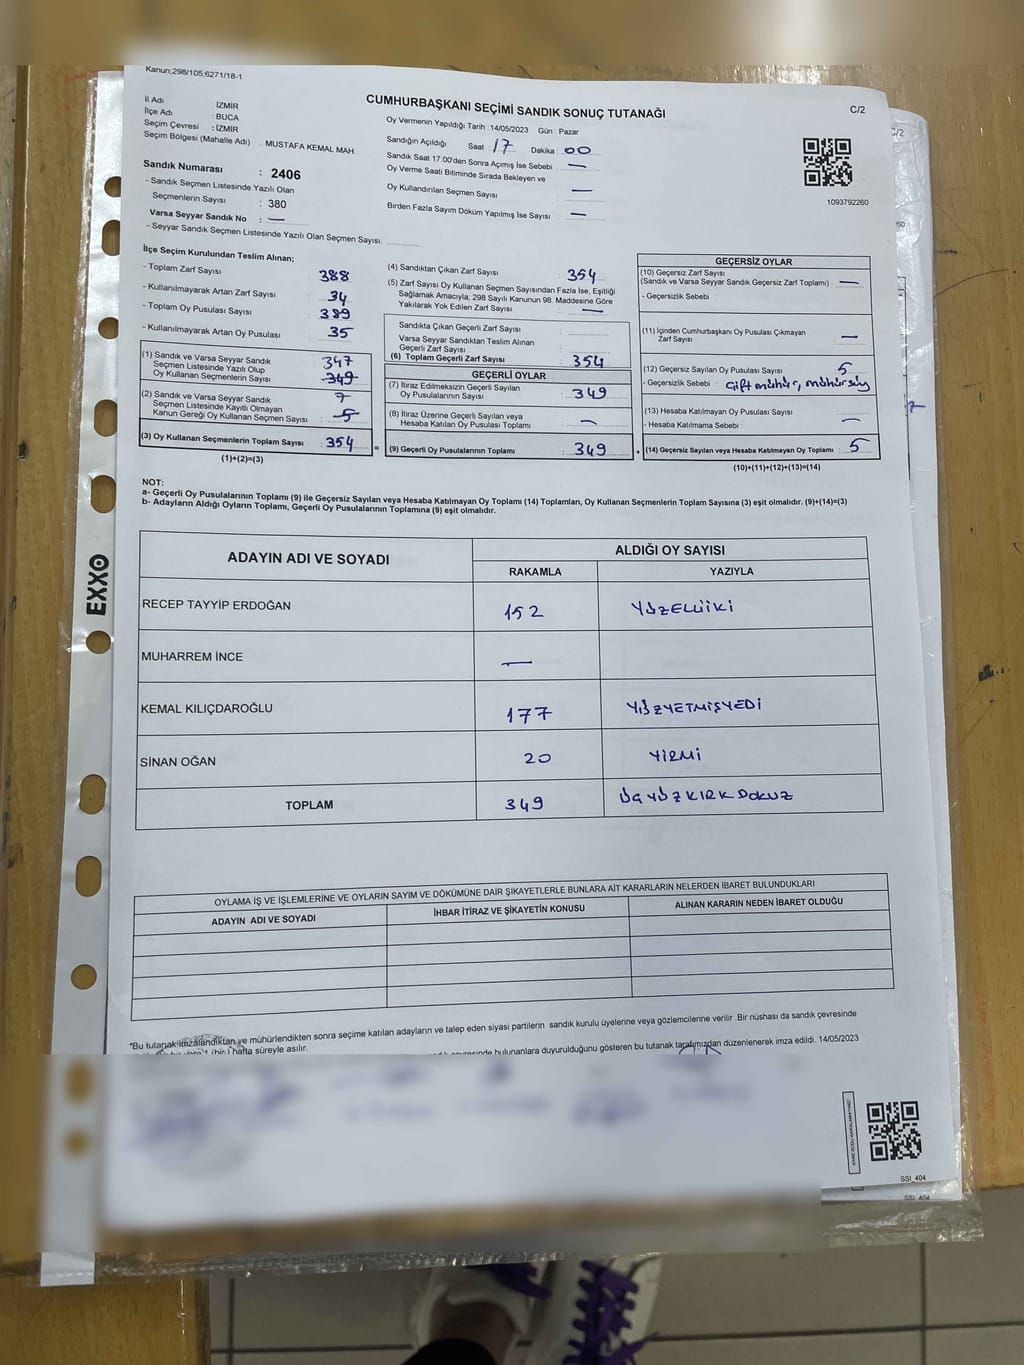 Kanun;298/105;6271/18-1
CUMHURBAŞKANI SEÇİMİ SANDIK SONUÇ TUTANAĞI
C/2
İl Adı : İZMİR
İlçe Adı : BUCA
Seçim Çevresi : İZMİR
Seçim Bölgesi (Mahalle Adı) : MUSTAFA KEMAL MAH.
Sandık Numarası : 2406
- Sandık Seçmen Listesinde Yazılı Olan
Seçmenlerin Sayısı : 380
Varsa Seyyar Sandık No : —
- Seyyar Sandık Seçmen Listesinde Yazılı Olan Seçmen Sayısı:
Oy Vermenin Yapıldığı Tarih : 14/05/2023 Gün : Pazar
Sandığın Açıldığı Saat : 17 Dakika : 00
Sandık Saat 17:00'den Sonra Açımış İse Sebebi : —
Oy Verme Saati Bitiminde Sırada Bekleyen ve
Oy Kullandırılan Seçmen Sayısı : —
Birden Fazla Sayım Döküm Yapılmış İse Sayısı : —
1093792260
İlçe Seçim Kurulundan Teslim Alınan;
- Toplam Zarf Sayısı : 388
- Kullanılmayarak Artan Zarf Sayısı : 34
- Toplam Oy Pusulası Sayısı : 389
- Kullanılmayarak Artan Oy Pusulası : 35
(1) Sandık ve Varsa Seyyar Sandık
Seçmen Listesinde Yazılı Olup
Oy Kullanan Seçmenlerin Sayısı : 347 349
(2) Sandık ve Varsa Seyyar Sandık
Seçmen Listesinde Kayıtlı Olmayan
Kanun Gereği Oy Kullanan Seçmen Sayısı : 7 5
(3) Oy Kullanan Seçmenlerin Toplam Sayısı : 354
(1)+(2)=(3)
(4) Sandıktan Çıkan Zarf Sayısı : 354
(5) Zarf Sayısı Oy Kullanan Seçmen Sayısından Fazla İse, Eşitliği
Sağlamak Amacıyla; 298 Sayılı Kanunun 98. Maddesine Göre
Yakılarak Yok Edilen Zarf Sayısı : —
Sandıkta Çıkan Geçerli Zarf Sayısı :
Varsa Seyyar Sandıktan Teslim Alınan
Geçerli Zarf Sayısı :
(6) Toplam Geçerli Zarf Sayısı : 354
GEÇERLİ OYLAR
(7) İtiraz Edilmeksizin Geçerli Sayılan
Oy Pusulalarının Sayısı : 349
(8) İtiraz Üzerine Geçerli Sayılan veya
Hesaba Katılan Oy Pusulası Toplamı : —
= (9) Geçerli Oy Pusulalarının Toplamı : 349
GEÇERSİZ OYLAR
(10) Geçersiz Zarf Sayısı
(Sandık ve Varsa Seyyar Sandık Geçersiz Zarf Toplamı) : —
- Geçersizlik Sebebi :
(11) İçinden Cumhurbaşkanı Oy Pusulası Çıkmayan
Zarf Sayısı : —
(12) Geçersiz Sayılan Oy Pusulası Sayısı : 5
- Geçersizlik Sebebi : çift mühür, mühürsüz
(13) Hesaba Katılmayan Oy Pusulası Sayısı : —
- Hesaba Katılmama Sebebi :
+ (14) Geçersiz Sayılan veya Hesaba Katılmayan Oy Toplamı : 5
(10)+(11)+(12)+(13)=(14)
NOT:
a- Geçerli Oy Pusulalarının Toplamı (9) ile Geçersiz Sayılan veya Hesaba Katılmayan Oy Toplamı (14) Toplamları, Oy Kullanan Seçmenlerin Toplam Sayısına (3) eşit olmalıdır. (9)+(14)=(3)
b- Adayların Aldığı Oyların Toplamı, Geçerli Oy Pusulalarının Toplamına (9) eşit olmalıdır.
ADAYIN ADI VE SOYADI
ALDIĞI OY SAYISI
RAKAMLA YAZIYLA
RECEP TAYYİP ERDOĞAN 152 YÜZELLİİKİ
MUHARREM İNCE —
KEMAL KILIÇDAROĞLU 177 YÜZYETMİŞYEDİ
SİNAN OĞAN 20 YİRMİ
TOPLAM 349 ÜÇYÜZKIRKDOKUZ
OYLAMA İŞ VE İŞLEMLERİNE VE OYLARIN SAYIM VE DÖKÜMÜNE DAİR ŞİKAYETLERLE BUNLARA AİT KARARLARIN NELERDEN İBARET BULUNDUKLARI
ADAYIN ADI VE SOYADI İHBAR İTİRAZ VE ŞİKAYETİN KONUSU ALINAN KARARIN NEDEN İBARET OLDUĞU
*Bu tutanak imzalandıktan ve mühürlendikten sonra seçime katılan adayların ve talep eden siyasi partilerin sandık kurulu üyelerine veya gözlemcilerine verilir .Bir nüshası da sandık çevresinde
1 (bir) hafta süreyle asılır.
bulunanlara duyurulduğunu gösteren bu tutanak tarafımızdan düzenlenerek imza edildi. 14/05/2023
SSI_404
SSI_404
EXXO
C/2